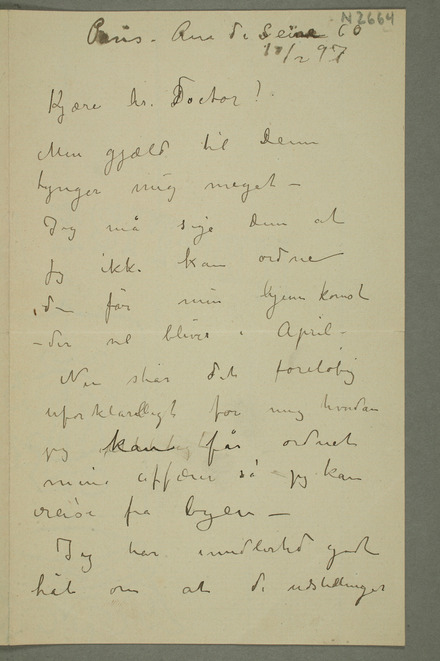 N 2664
Paris - Rue de Seine 60
/2 97
Kjære hr. Doctor!
Min gjæld til Dem
tynger mig meget -
Jeg må sige Dem at
jeg ikke kan ordne
den før min hjemkomst
- der vil blive i April -
Nu står det foreløbig
uforklarligt for mig hvordan
jeg kan får ordnet
mine affærer så jeg kan
reise fra byen -
Jeg har imidlertid godt
håb om at de udstillinger